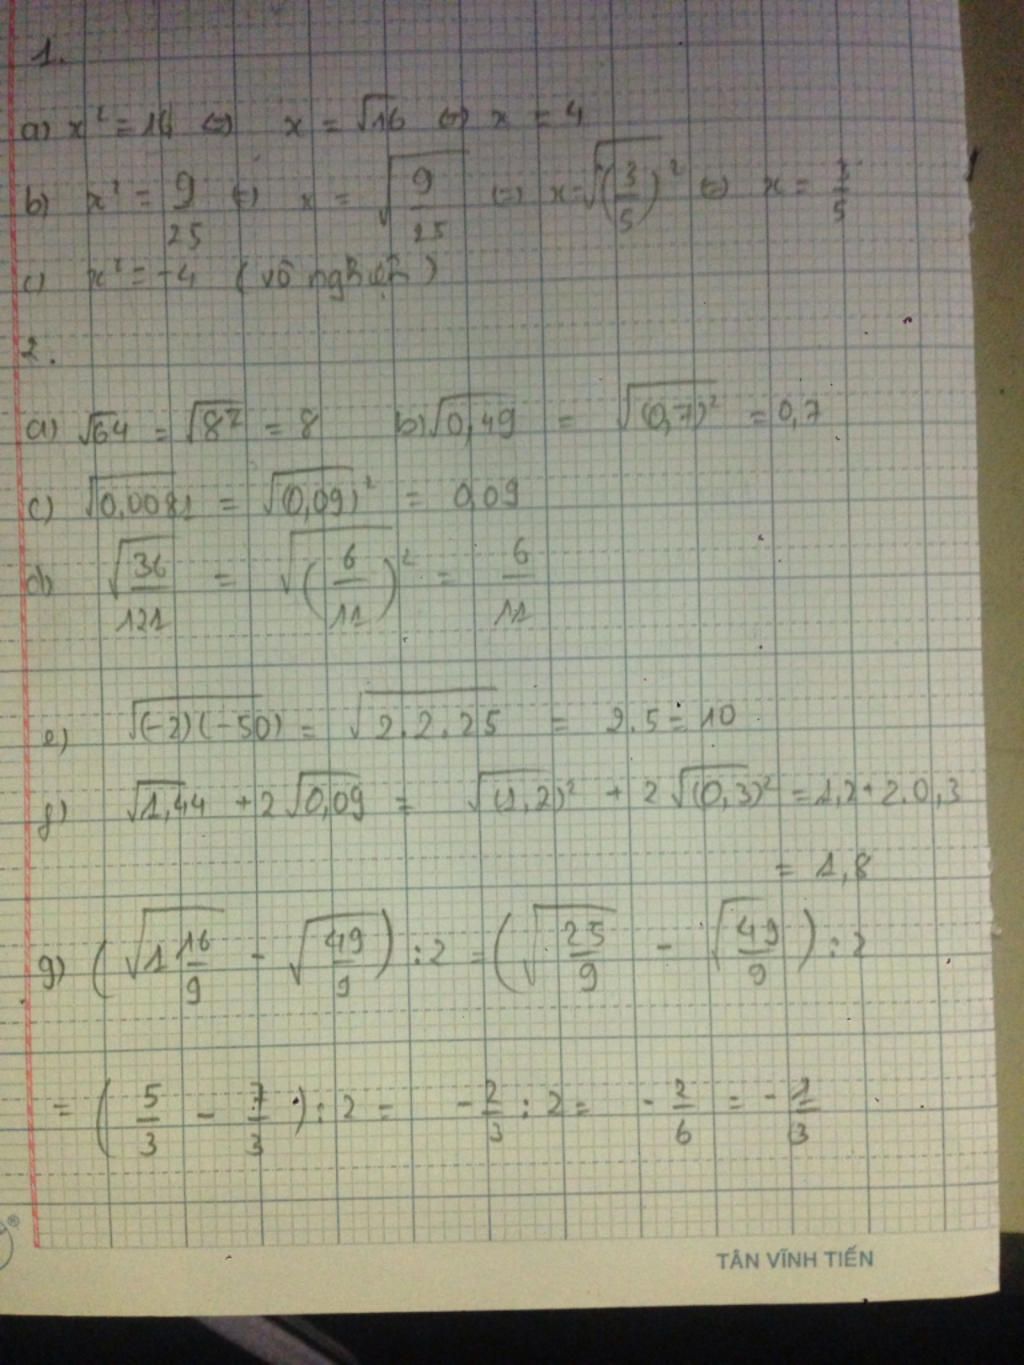 1.
a) x² = 16 ⇔ x = √16 ⇔ x = 4
b) x² = 9/25 ⇔ x = √(9/25) ⇔ x = √(3/5)² ⇔ x = 3/5
c) x² = -4 (vô nghiệm)
2.
a) √64 = √8² = 8 b) √0,49 = √(0,7)² = 0,7
c) √0,0081 = √(0,09)² = 0,09
d) √36/121 = √(6/11)² = 6/11
e) √(-2)(-50) = √2.2.25 = 2.5 = 10
f) √1,44 + 2√0,09 = √(1,2)² + 2√(0,3)² = 1,2 + 2.0,3
= 1,8
g) (√1 16/9 - √49/9) : 2 = (√25/9 - √49/9) : 2
= (5/3 - 7/3) : 2 = -2/3 : 2 = -2/6 = -1/3
TÂN VĨNH TIẾN